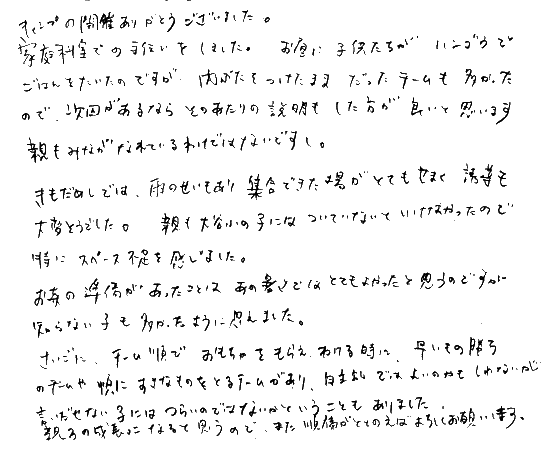 キャンプの開催ありがとうございました。
家庭科室での手伝いをしました。 お昼に子供たちが ハンゴウで
ごはんをたいたのですが、内ぶたをつけたまま だったチームも多かった
ので、次回があるなら そのあたりの説明も した方が良いと思います
親もみながなれているわけではないですし。
きもだめしでは、雨のせいもあり 集合できた場がとてもせまく 誘導も
大変そうでした。 親も大谷小の子には ついていないと いけなかったので
特に スペース不足を感じました。
お茶の準備があったことは あの暑さではとてもよかったと思うのですが
知らない子も多かったように思えました。
さいごに、チーム順で おもちゃをもらえ わける時に、早いもの勝ち
のチームや 順にすきなものをとるチームがあり、自主性でよいのかもしれないが
言いだせない子にはつらいのではないかということもありました
親子の成長になると思うので、また準備がととのえばよろしくお願いします。